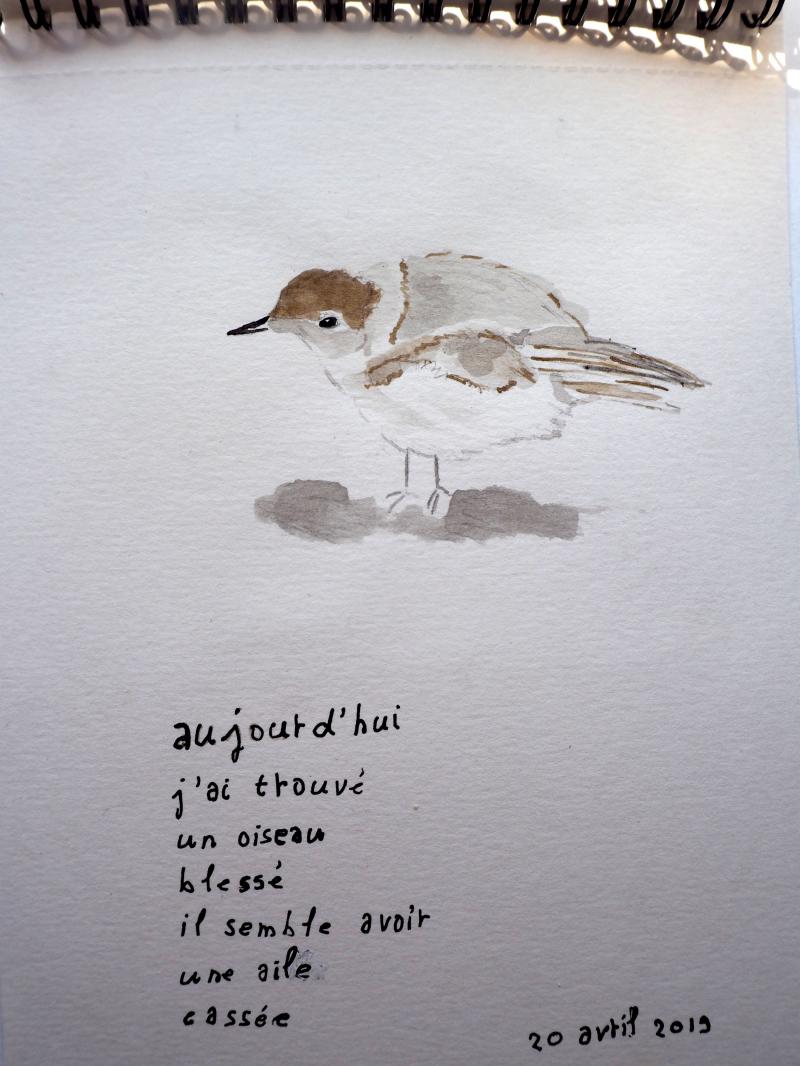 aujourd'hui
j'ai trouvé
un oiseau
blessé
il semble avoir
une aile
cassée
20 avril 2019